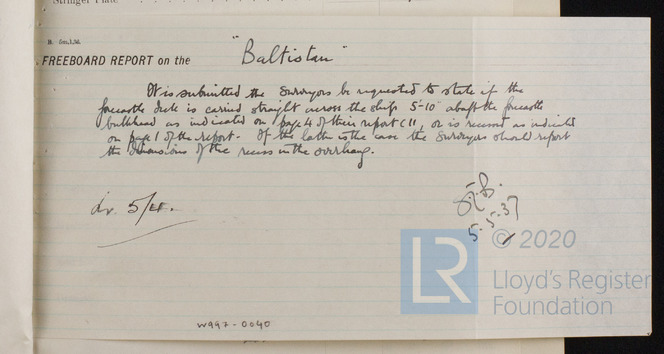 Stringer Plate
FREEBOARD REPORT on the "Baltistan"
It is submitted the Surveyors be requested to state if the
forecastle deck is carried straight across the ship 5'-10" abaft the forecastle
bulkhead as indicated on page 4 of their report C11, or is recessed as indicated
on page 1 of the report. If the latter is the case the Surveyors should report
the dimensions of the recess in the overhang.
5.5.37
LR
© 2020
Lloyd's Register
Foundation
W997-0040